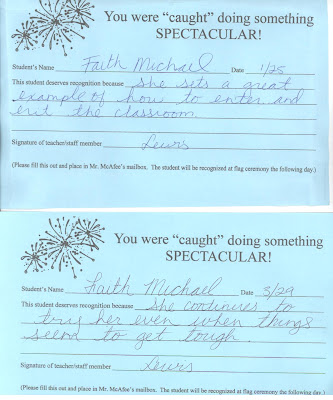 You were “caught” doing something
SPECTACULAR!
Student's Name Faith Michael Date 1/25
This student deserves recognition because she sets a great
example of how to enter and
exit the classroom
Signature of teacher/staff member Lewis
(Please fill this out and place in Mr. McAfee's mailbox. The student will be recognized at flag ceremony the following day.)
You were “caught” doing something
SPECTACULAR!
Student's Name Faith Michael Date 3/29
This student deserves recognition because she continues to
her even when things
seem to get tough.
Signature of teacher/staff member Lewis
(Please fill this out and place in Mr. McAfee's mailbox. The student will be recognized at flag ceremony the following day.)